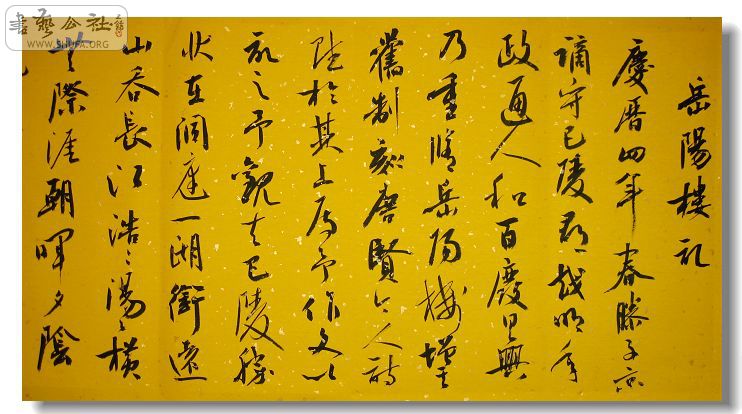 岳陽樓記
慶曆四年春滕子京
謫守巴陵郡越明年
政通人和百廢具興
乃重修岳陽樓增其
舊制刻唐賢今人詩
賦於其上屬予作文以
記之予觀夫巴陵勝
狀在洞庭一湖銜遠
山吞長江浩々湯々橫
無際涯朝暉夕陰
書藝公社
WWW.SHUFA.ORG